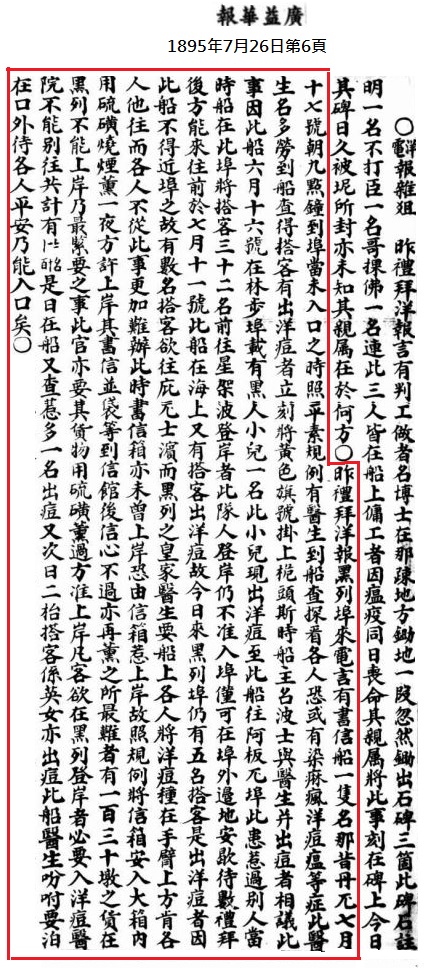 廣益華報
1895年7月26日第6頁
〇電報雜俎 昨禮拜洋報言有判工做者名博士在那疎地方鋤地一段忽然鋤出石碑三箇此碑石註
明一名不打臣一名哥揼佛一名連此三人皆在船上傭工者因瘟疫同日喪命其親属將此事刻在碑上今日
其碑日久被坭所封亦未知其親属在於何方〇昨禮拜洋報黑列埠來電言有書信船一隻名那昔丹兀七月
十七號朝九點鐘到埠當未入口之時照平素規例有醫生到船查探看各人恐或有染痳瘋洋痘瘟等症此醫
生名多勞到船查得搭客有出洋痘者立刻將黄色旗號掛上桅頭斯時船主名波士與醫生并出痘者相議此
事因此船六月十六號在林步埠載有黑人小兒一名此小兒現出洋痘至此船往阿板兀埠此患惹過别人當
時船在此埠將搭客三十二名前往星架波登岸者此隊人登岸仍不准入埠僅可在埠外邊地安歇待數禮拜
後方能來往前於七月十一號此船在海上又有搭客出洋痘故今日來黑列埠仍有五名搭客是出洋痘者因
此船不得近埠之故有數名搭客欲往庇兀士濱而黑列之皇家醫生要船上各人將洋痘種在手臂上方肯各
人他往而各人不從此事更加難辦此時書信箱亦未曾上岸恐由信箱惹上岸故照規例將信箱安入大箱内
用硫磺燒煙薰一夜方許上岸其書信並袋等到信館後信心不過亦再薰之所最難者有一百三十墩之貨在
黑列不能上岸乃最緊要之事此官亦要其貨物用硫磺薰過方准上岸凡客欲在黑列登岸者必要入洋痘醫
院不能别往共計有 名是日在船又查惹多一名出痘又次日二枱搭客係英女亦出痘此船醫生吩咐要泊
在口外待各人平安乃能入口矣〇